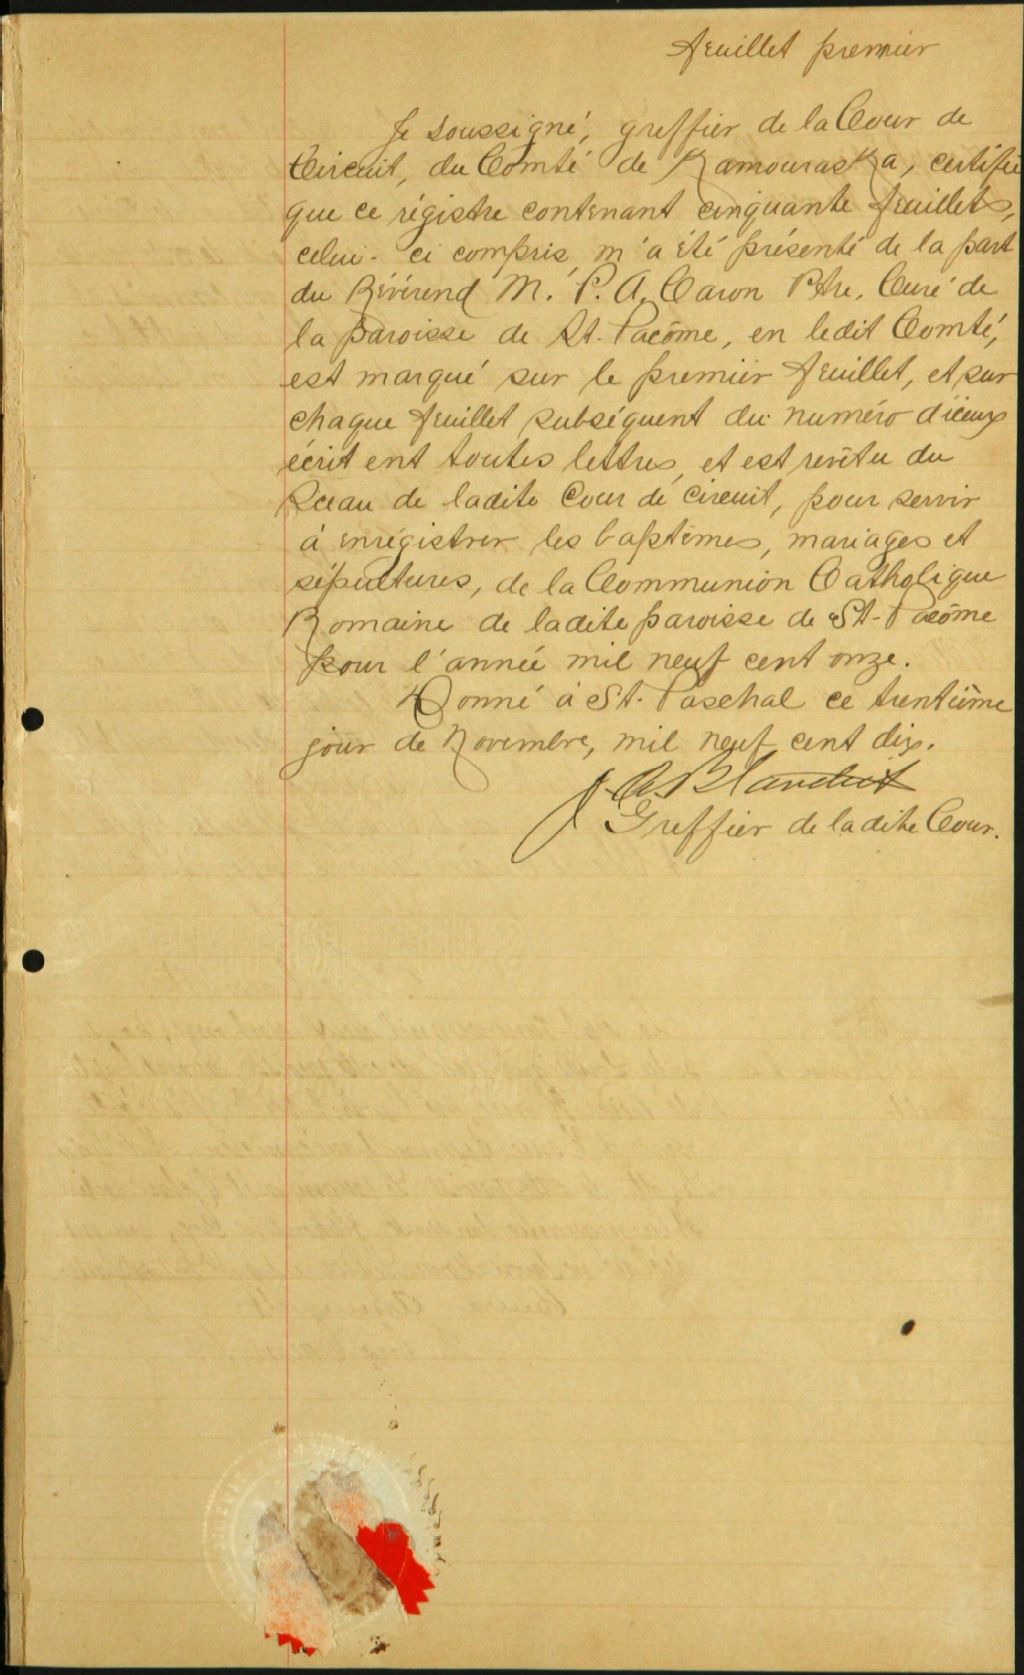 feuillet premier
Je soussigné, greffier de la Cour de
Circuit, du Comté de Kamouraska, certifie
que ce régistre contenant cinquante feuillets,
celui-ci compris, m'a été présenté de la part
du Révérend M. P. A. Caron Ptre. Curé de
la paroisse de St. Pacôme, en ledit Comté,
est marqué sur le premier feuillet, et sur
chaque feuillet subséquent du numéro d'iceux
écrit ent toutes lettres, et est revêtu du
Sceau de ladite Cour de circuit, pour servir
à enrégistrer les baptêmes, mariages et
sépultures, de la Communion Catholique
Romaine de ladite paroisse de St-Pacôme
pour l'année mil neuf cent onze.
Donné à St. Paschal ce trentième
jour de Novembre, mil neuf cent dix.
J. A. Blanchet
Greffier de ladite Cour.